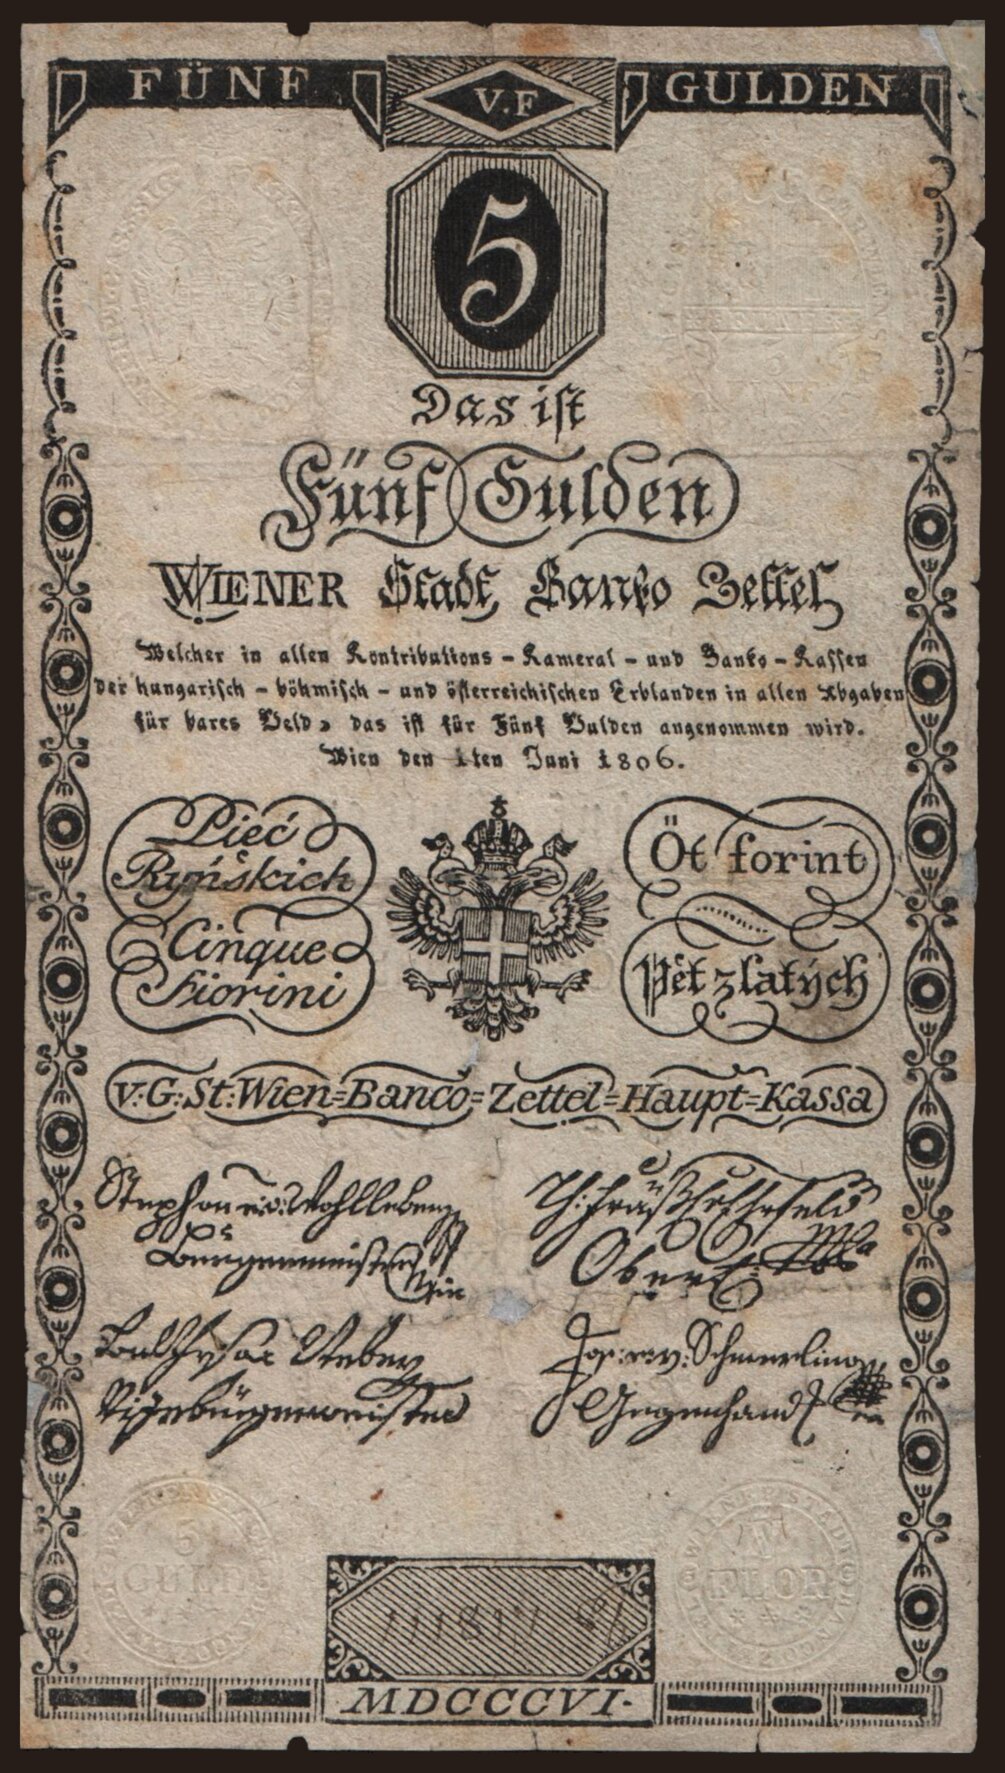 FÜNF V.F GULDEN
5
Das ist
Fünf Gulden
WIENER Stadt Banko Zettel
Welcher in allen Kontributions - Kameral - und Banko - Kassen
der hungarisch - böhmisch - und österreichischen Erblanden in allen Abgaben
für bares Geld, das ist für Fünf Gulden angenommen wird.
Wien den 1ten Juni 1806.
Pieć
Ryńskich
Cinque
Fiorini
Öt forint
Pět zlatých
V:G:St:Wien=Banco=Zettel=Haupt=Kassa
Stephan e.v: Wohlleben
Burgermeister
Jos: e.v: Schmerling
Gegenhand
5
GULD
FLOR
MDCCCVI.